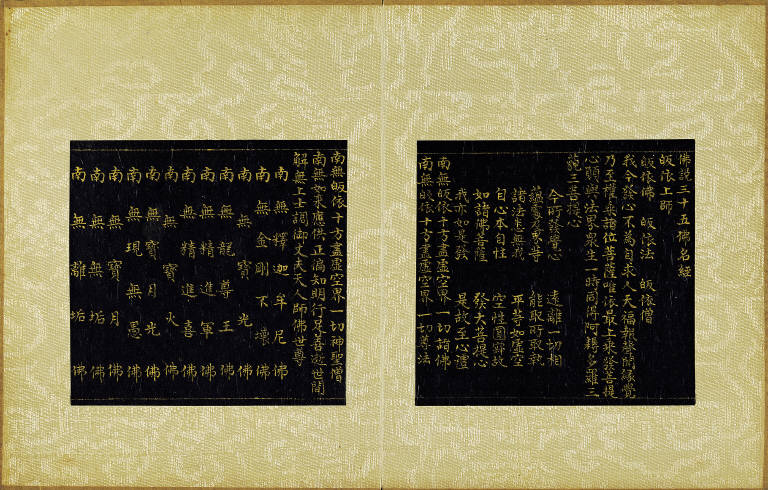 佛説三十五佛名經
皈依上師
皈依佛 皈依法 皈依僧
我今發心不為自求人天福報聲聞緣覺
乃至權乘諸位菩薩唯依最上乘發菩提
心願與法界眾生一時同得阿耨多羅三
藐三菩提心
今所發覺心 遠離一切相
蘊處及界等 能取所取執
諸法悉無我 平等如虛空
自心本自性 空性圓寂故
如諸佛菩薩 發大菩提心
我亦如是發 是故至心禮
南無皈依十方盡虛空界一切諸佛
南無皈依十方盡虛空界一切尊法
南無皈依十方盡虛空界一切神聖僧
南無如來應供正徧知明行足善逝世間
解無上士調御丈夫天人師佛世尊
南無釋迦牟尼佛
南無金剛不壞佛
南無寶光佛
南無龍尊王佛
南無精進軍佛
南無精進喜佛
南無寶火佛
南無寶月光佛
南無現無愚佛
南無寶月佛
南無無垢佛
南無離垢佛